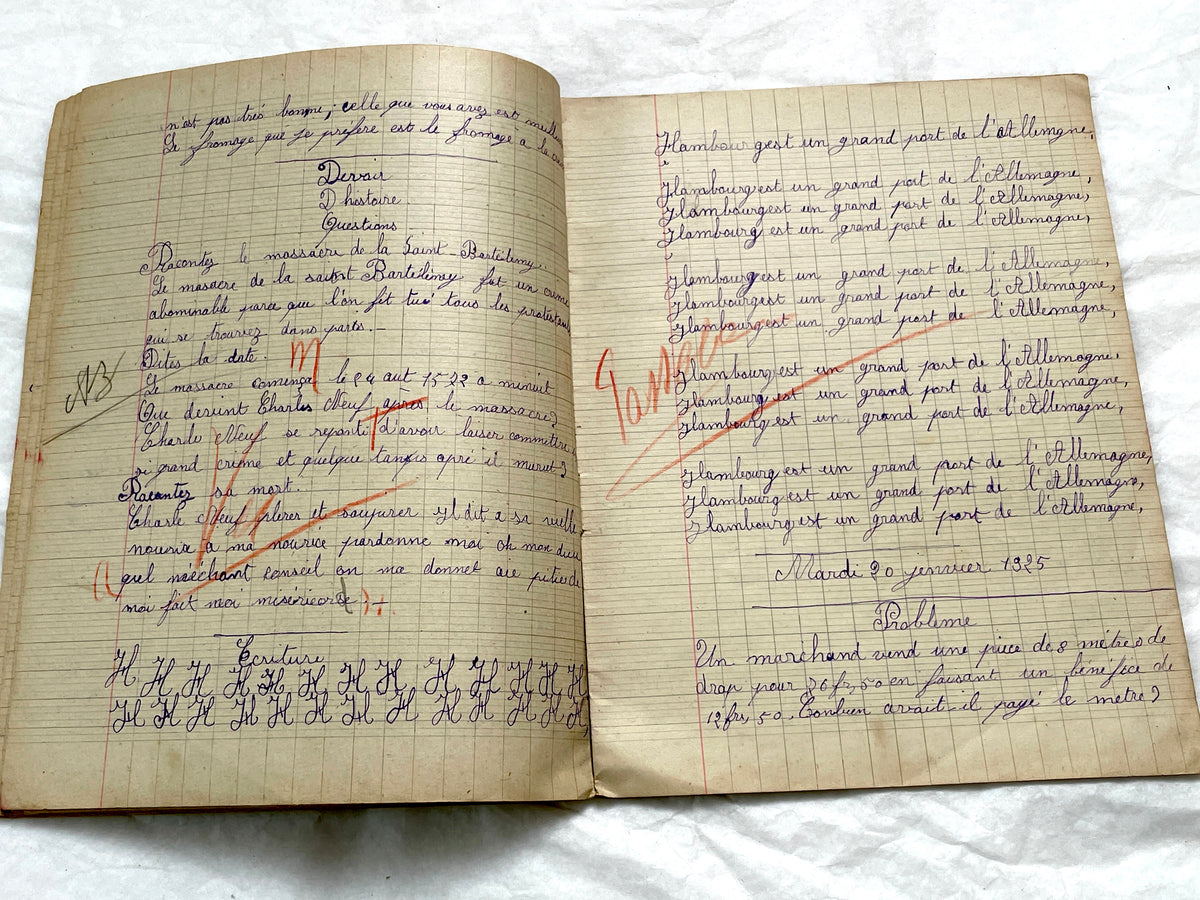 n'est pas très bonne; celle que vous avez est meill
Le fromage que je préfère est le fromage a la
Devoir
D'histoire
Questions
Racontez le massacre de la Saint-Bartélemy.
Le masacre de la saint Bartélémy fut un crime
abominable parce que l'on fit tué tous les protestants
qui se trouvez dans paris.—
Dites la date.
M
NB
Le massacre comença le 24 aut 1522 a minuit
Que devint Charles Neuf apres le massacre?
Charle Neuf se repanti d'avoir laiser commetre
si grand crime et quelque tanps apré il murut?
Racontez sa mort.
Vu
Charle Neuf plerer et soupirer Il dit a sa vieille
nourix a ma nourice pardonne moi oh mon dieu
quel méèchant conseil on ma donnet aie pitier de
moi fait moi miséricorde
Ecriture
H H H H H H H H H H H H H
H H H H H H H H H H H H H
Hambourg est un grand port de l'Allemgne,
Hambourg est un grand port de l'Allemagne,
Hambourg est un grand port de l'Allemagne,
Hambourg est un grand port de l'Allemagne,
Hambourg est un grand port de l'Allemagne,
Hambourg est un grand port de l'Allemagne,
Hambourg est un grand port de l'Allemagne,
Hambourg est un grand port de l'Allemagne,
Hambourg est un grand port de l'Allemagne,
Hambourg est un grand port de l'Allemagne,
Hambourg est un grand port de l'Allemagne,
Hambourg est un grand port de l'Allemagne,
Hambourg est un grand port de l'Allemagne,
Mardi 20 jenvier 1925
Problème
Un marchand vend une pièce de 8 mètres de
drap pour 36 fr, 50 en faisant un bénéfice de
12 frs, 50. Conbien avait-il payé le metre?